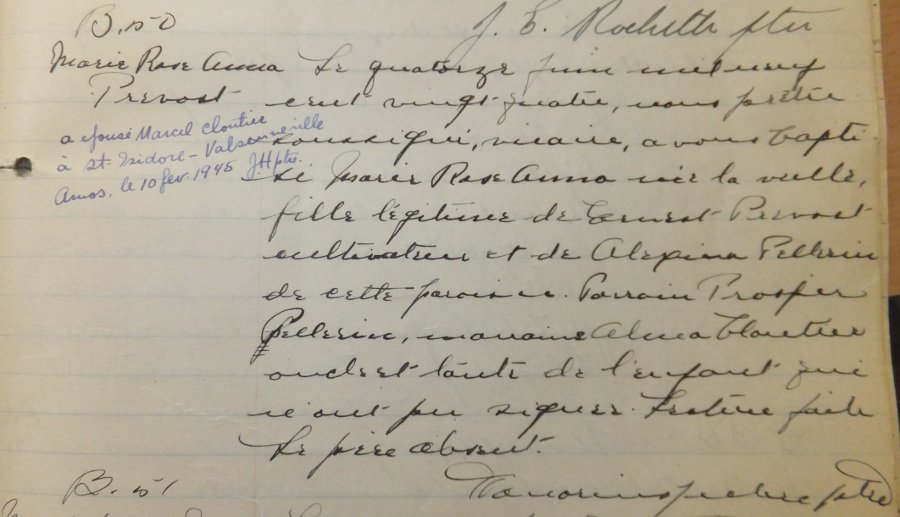 J. E. Rochette ptre
B. 50
Marie Rose Anna
Prevost
a épousé Marcel Cloutier
à St-Isidore - Valsenneville
Amos. le 10 fev. 1945 J.H ptre.
Le quatorze juin mil neuf
cent vingt-quatre, nous prêtre
soussigné, vicaire, avons bapti-
sé Marie Rose Anna née la veille,
fille légitime de Ernest Prevost
cultivateur et de Alexina Pellerin
de cette paroisse. Parrain Prosper
Pellerin, marraine Alma Cloutier
oncle et tante de l'enfant qui
n'ont pu signer. Lecture faite
Le père absent.
ptre
B. 51